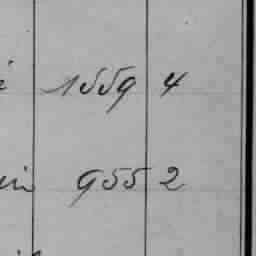 1559 4
955 2